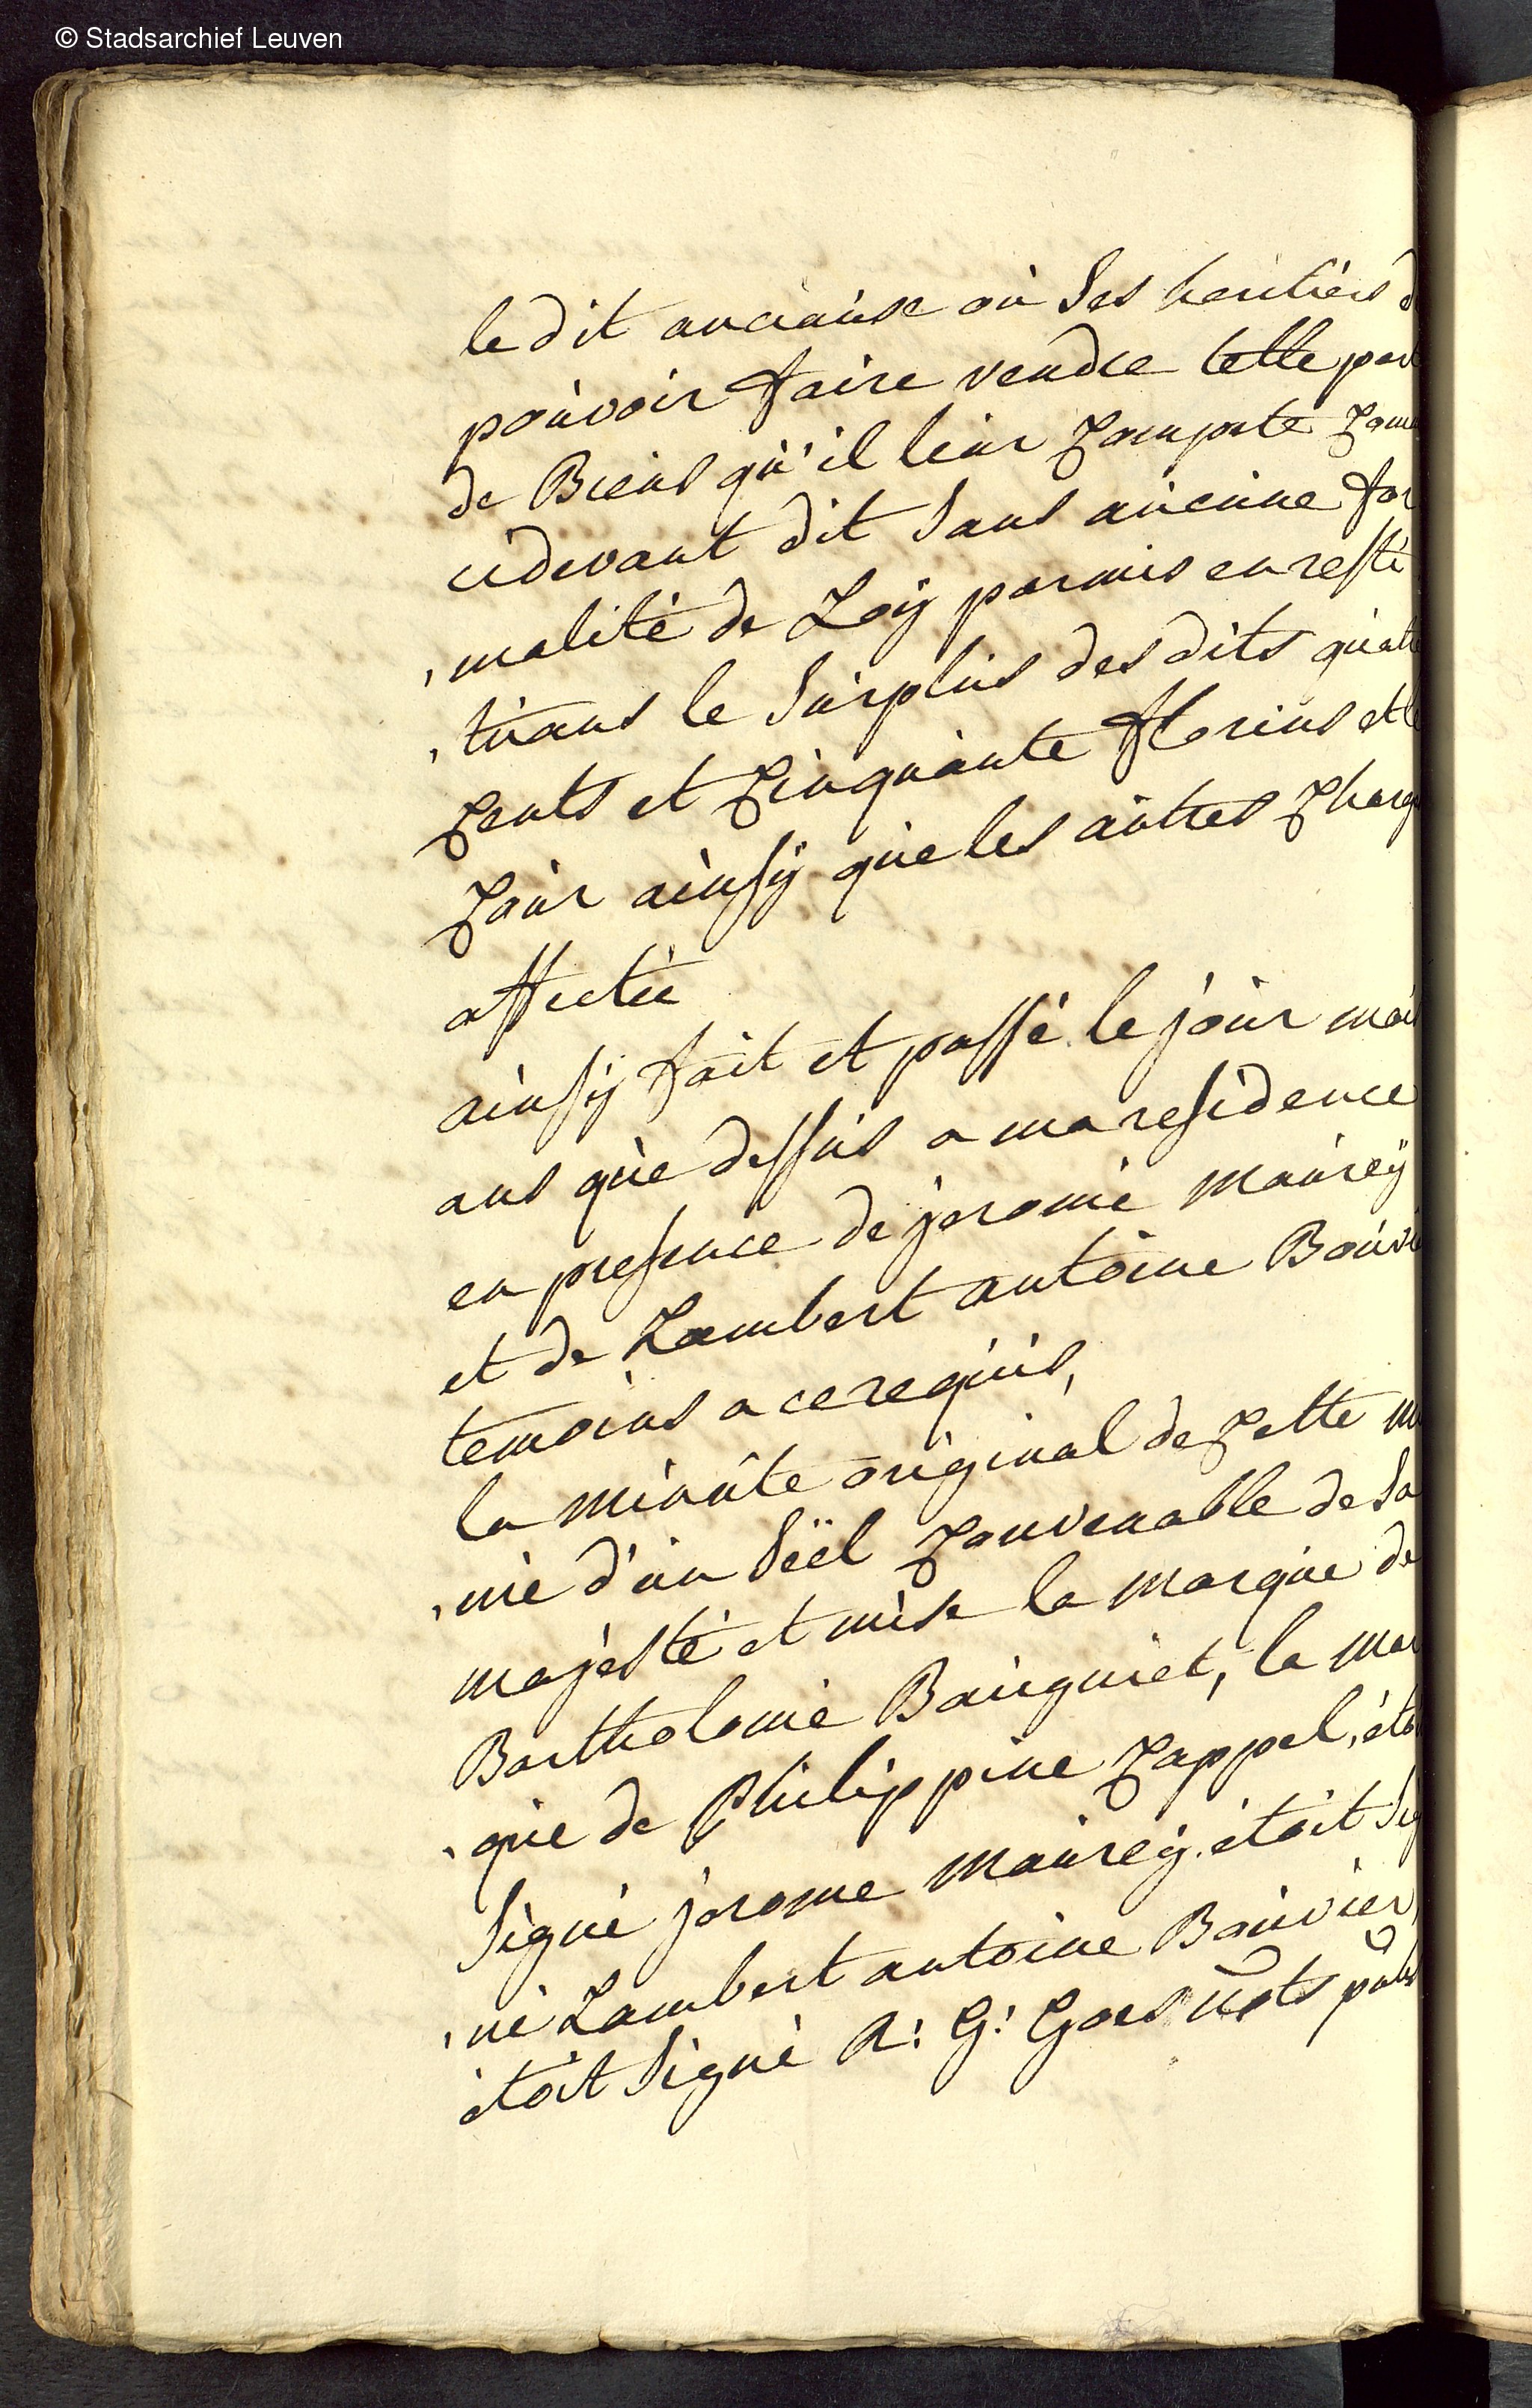 © Stadsarchief Leuven
le dit anciause ou ses heritiers d
pouvoir faire vendre telle part
de Biens qu'il leur Compete Com
cidevant dit sans aucune for
, malité de Loy parmis en resti
, tuans le surplus des dits quatre
Cents et Cinquante florins et le
Cour ainsy que les autres Charg
affectée
ainsy fait et passé le jour mois
ans que dessus a ma residence
en presence de jerome maurey
et de Lambert antoine Bouvi
temoins a ce requis,
la minute original de Cette mu
, nie d'un séel Convenable de Sa
majesté et mise la marque de
Bartholomé Bauguiet, la mar
, que de Philippine Cappel, éto
signé jerome maurey. étoit sig
, né Lambert antoine Bouvier,
étoit signé A: G: Goes nots pub